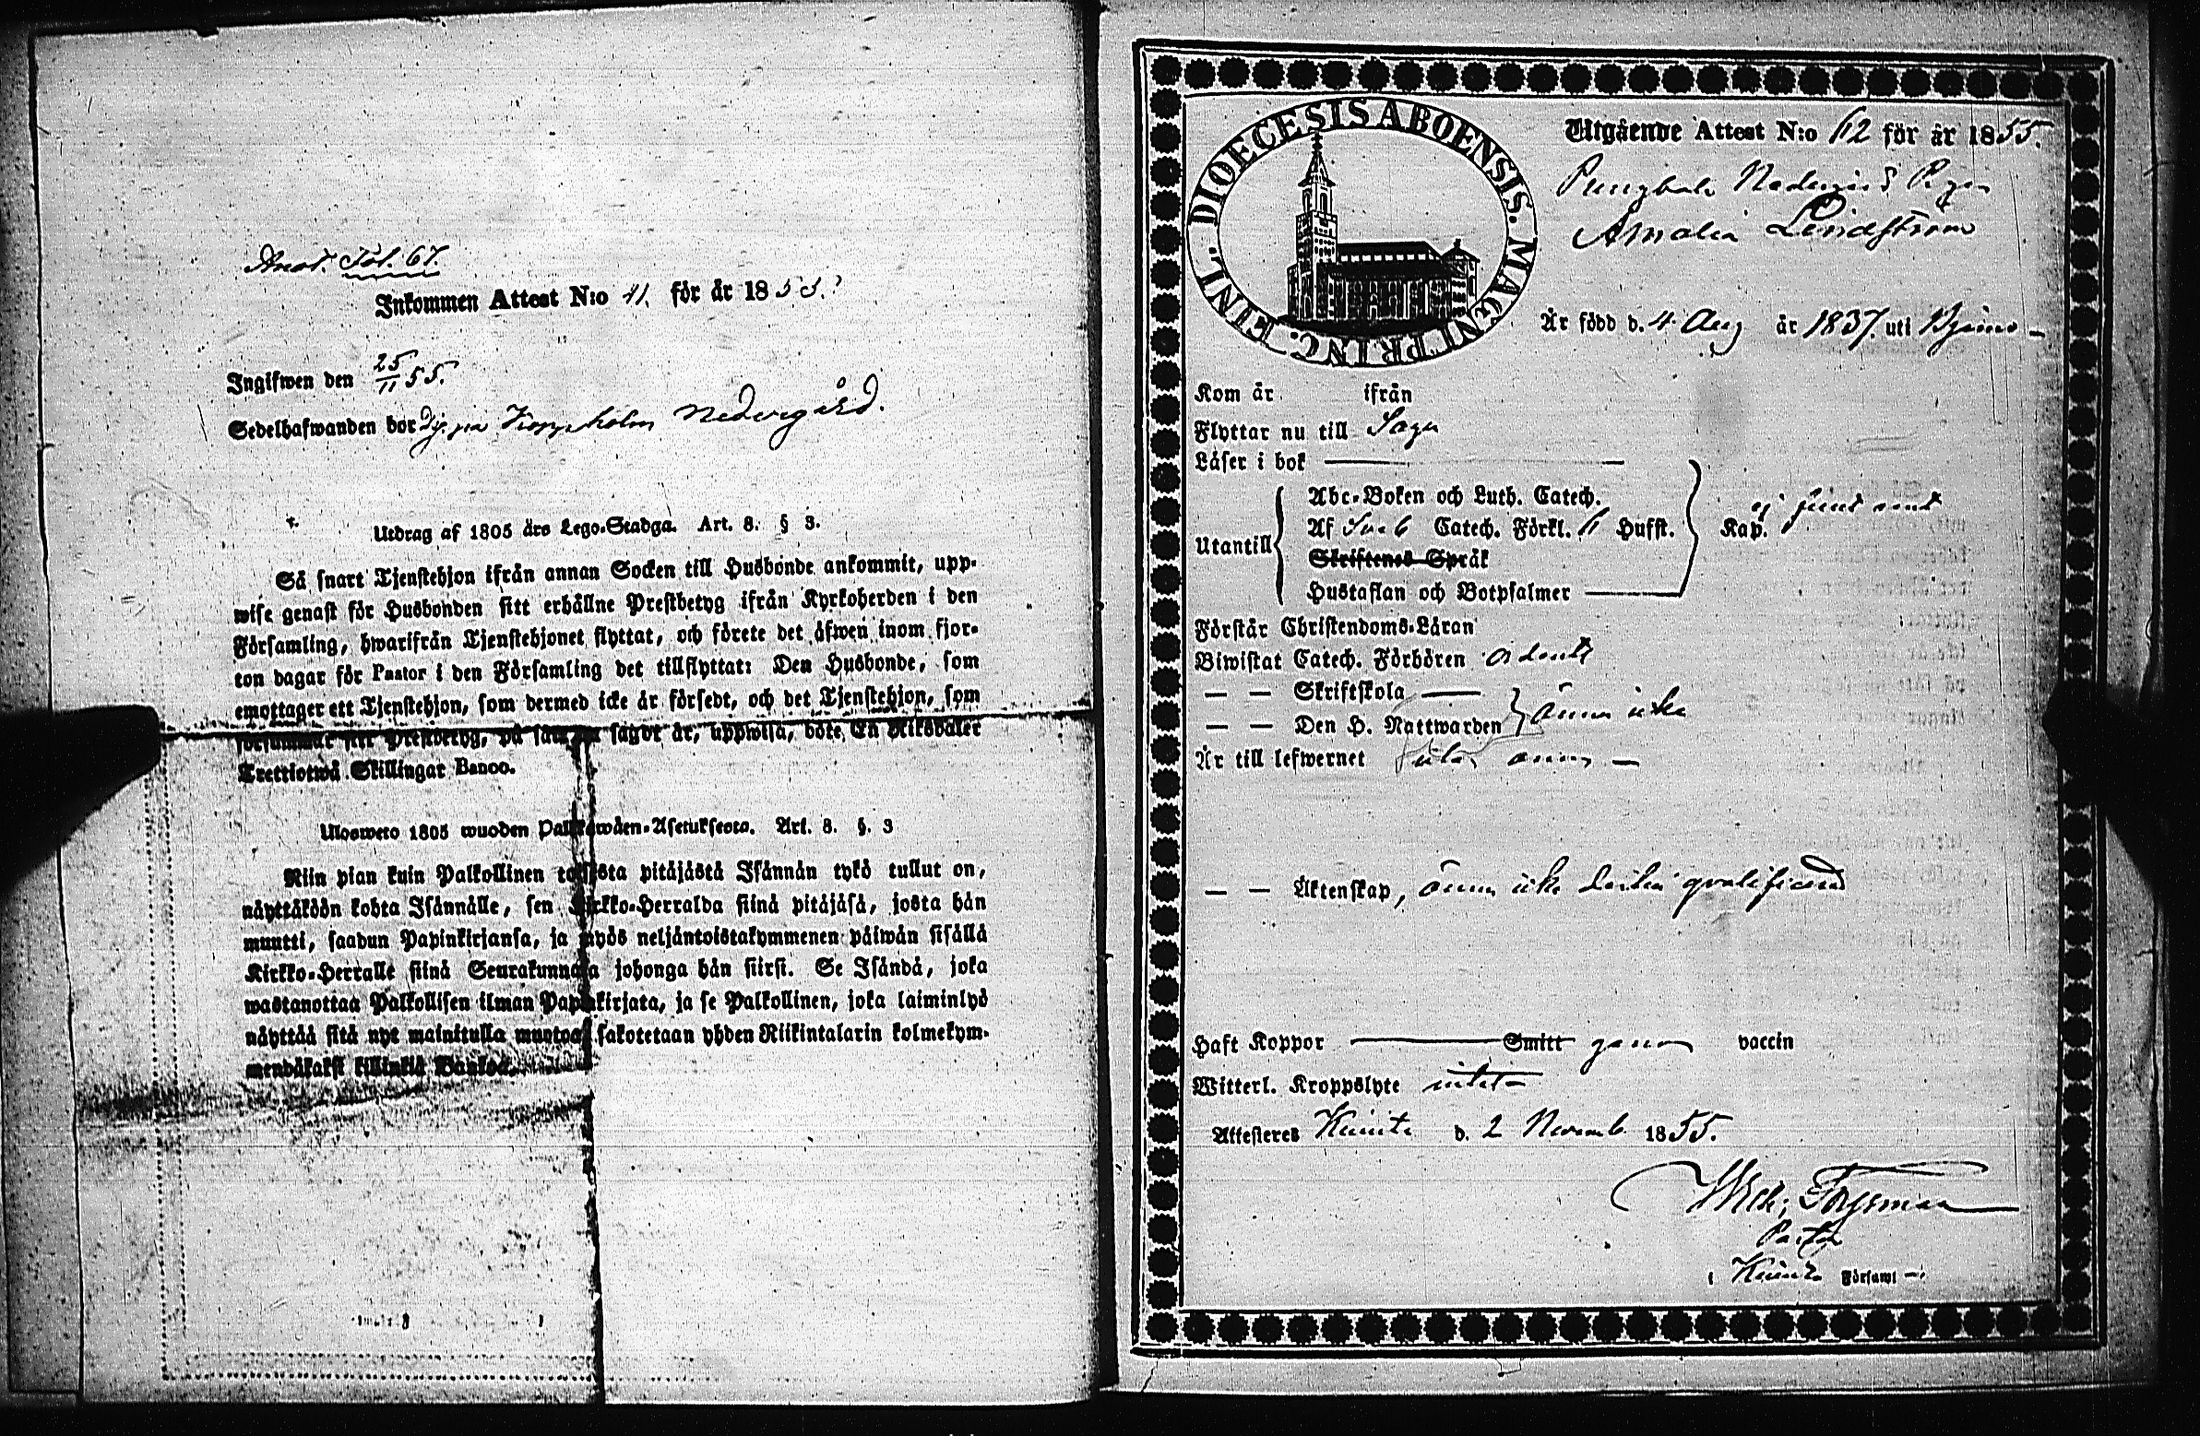 Anot. Fol. 67.
Inkommen Attest N:o 41. för år 1855.
Ingifwen den 25/11 55.
Sedelhafwanden bor holm Nedergård.
Utdrag af 1805 års Lego-Stadga. Art. 8. § 3.
Så snart Tjenstehjon ifrån annan Socken till Husbonde ankommit, upp-
wise genast för Husbonden sitt erhållne Prestbetyg ifrån Kyrkoherden i den
Församling, hwarifrån Tjenstehjonet flyttat, och förete det äfwen inom fjor-
ton dagar för Pastor i den Församling det tillflyttat: Den Husbonde, som
emottager ett Tjenstehjon, som dermed icke är försedt, och det Tjenstehjon, som
försummar sitt Prestbetyg, på sätt nu sagdt är, uppwisa, böte En Riksdaler
Trettiotwå Skillingar Banco.
Ulosweto 1805 wuoden Palkkawäen-Asetuksesta. Art. 8. §. 3
Niin pian kuin Palkollinen toisesta pitäjästä Isännän tykö tullut on,
näyttäköön kohta Isännälle, sen Kirkko-Herralda siinä pitäjäsä, josta hän
muutti, saadun Papinkirjansa, ja myös neljäntoistakymmenen päiwän sisällä
Kirkko-Herralle siinä Seurakunnasa johonga hän siirsi. Se Isändä, joka
wastanottaa Palkollisen ilman Papinkirjata, ja se Palkollinen, joka laiminlyö
näyttää sitä nyt mainitulla muotoa, sakotetaan yhden Riikintalarin kolmekym-
mendäkaksi killinkiä Bankos.
DIOECESIS ABOENSIS. MAGNI PRINC. FINL.
Utgående Attest N:o 62 för år 1855.
Pigan
Amalia Lindström
Är född d. 4 Aug år 1837. uti
Kom år ifrån
Flyttar nu till Sagu
Läser i bok
Utantill
Abc-Boken och Luth. Catech.
Af Sveb Catech. Förkl. 6 Hufst.
Kap. ej
Skriftenes Språk
Hustaflan och Botpsalmer
Förstår Christendoms-Läran
Biwistat Catech. Förhören
— — Skriftskola
— — Den H. Nattwarden ännu icke
Är till lefwernet
— — Äktenskap, ännu icke qvalificerad
Haft Koppor Smitt genom vaccin
Witterl. Kroppslyte intet
Attesteres Kimito d. 2 Novemb. 1855.
Wilh. Forsman
Pastor
i Kimito Församl